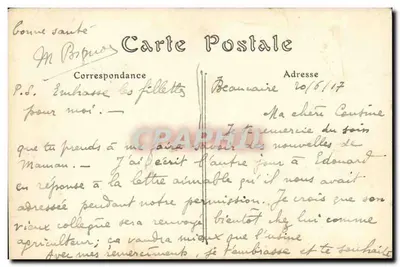 bonne santé
Carte Postale
Correspondance
Adresse
P.S. Embrasse les fillettes
pour moi. —
Beaucaire 20/6/17
Ma chère Cousine
Je te remercie du soin
que tu prends à me faire savoir des nouvelles de
Maman. — J'ai écrit l'autre jour à Edouard
en réponse à la lettre aimable qu'il nous avait
adressée pendant notre permission. Je crois que son
vieux collègue sera renvoyé bientôt chez lui comme
agriculteur; ça vaudra mieux que l'usine
Avec mes remerciments, je t'embrasse et te souhaite